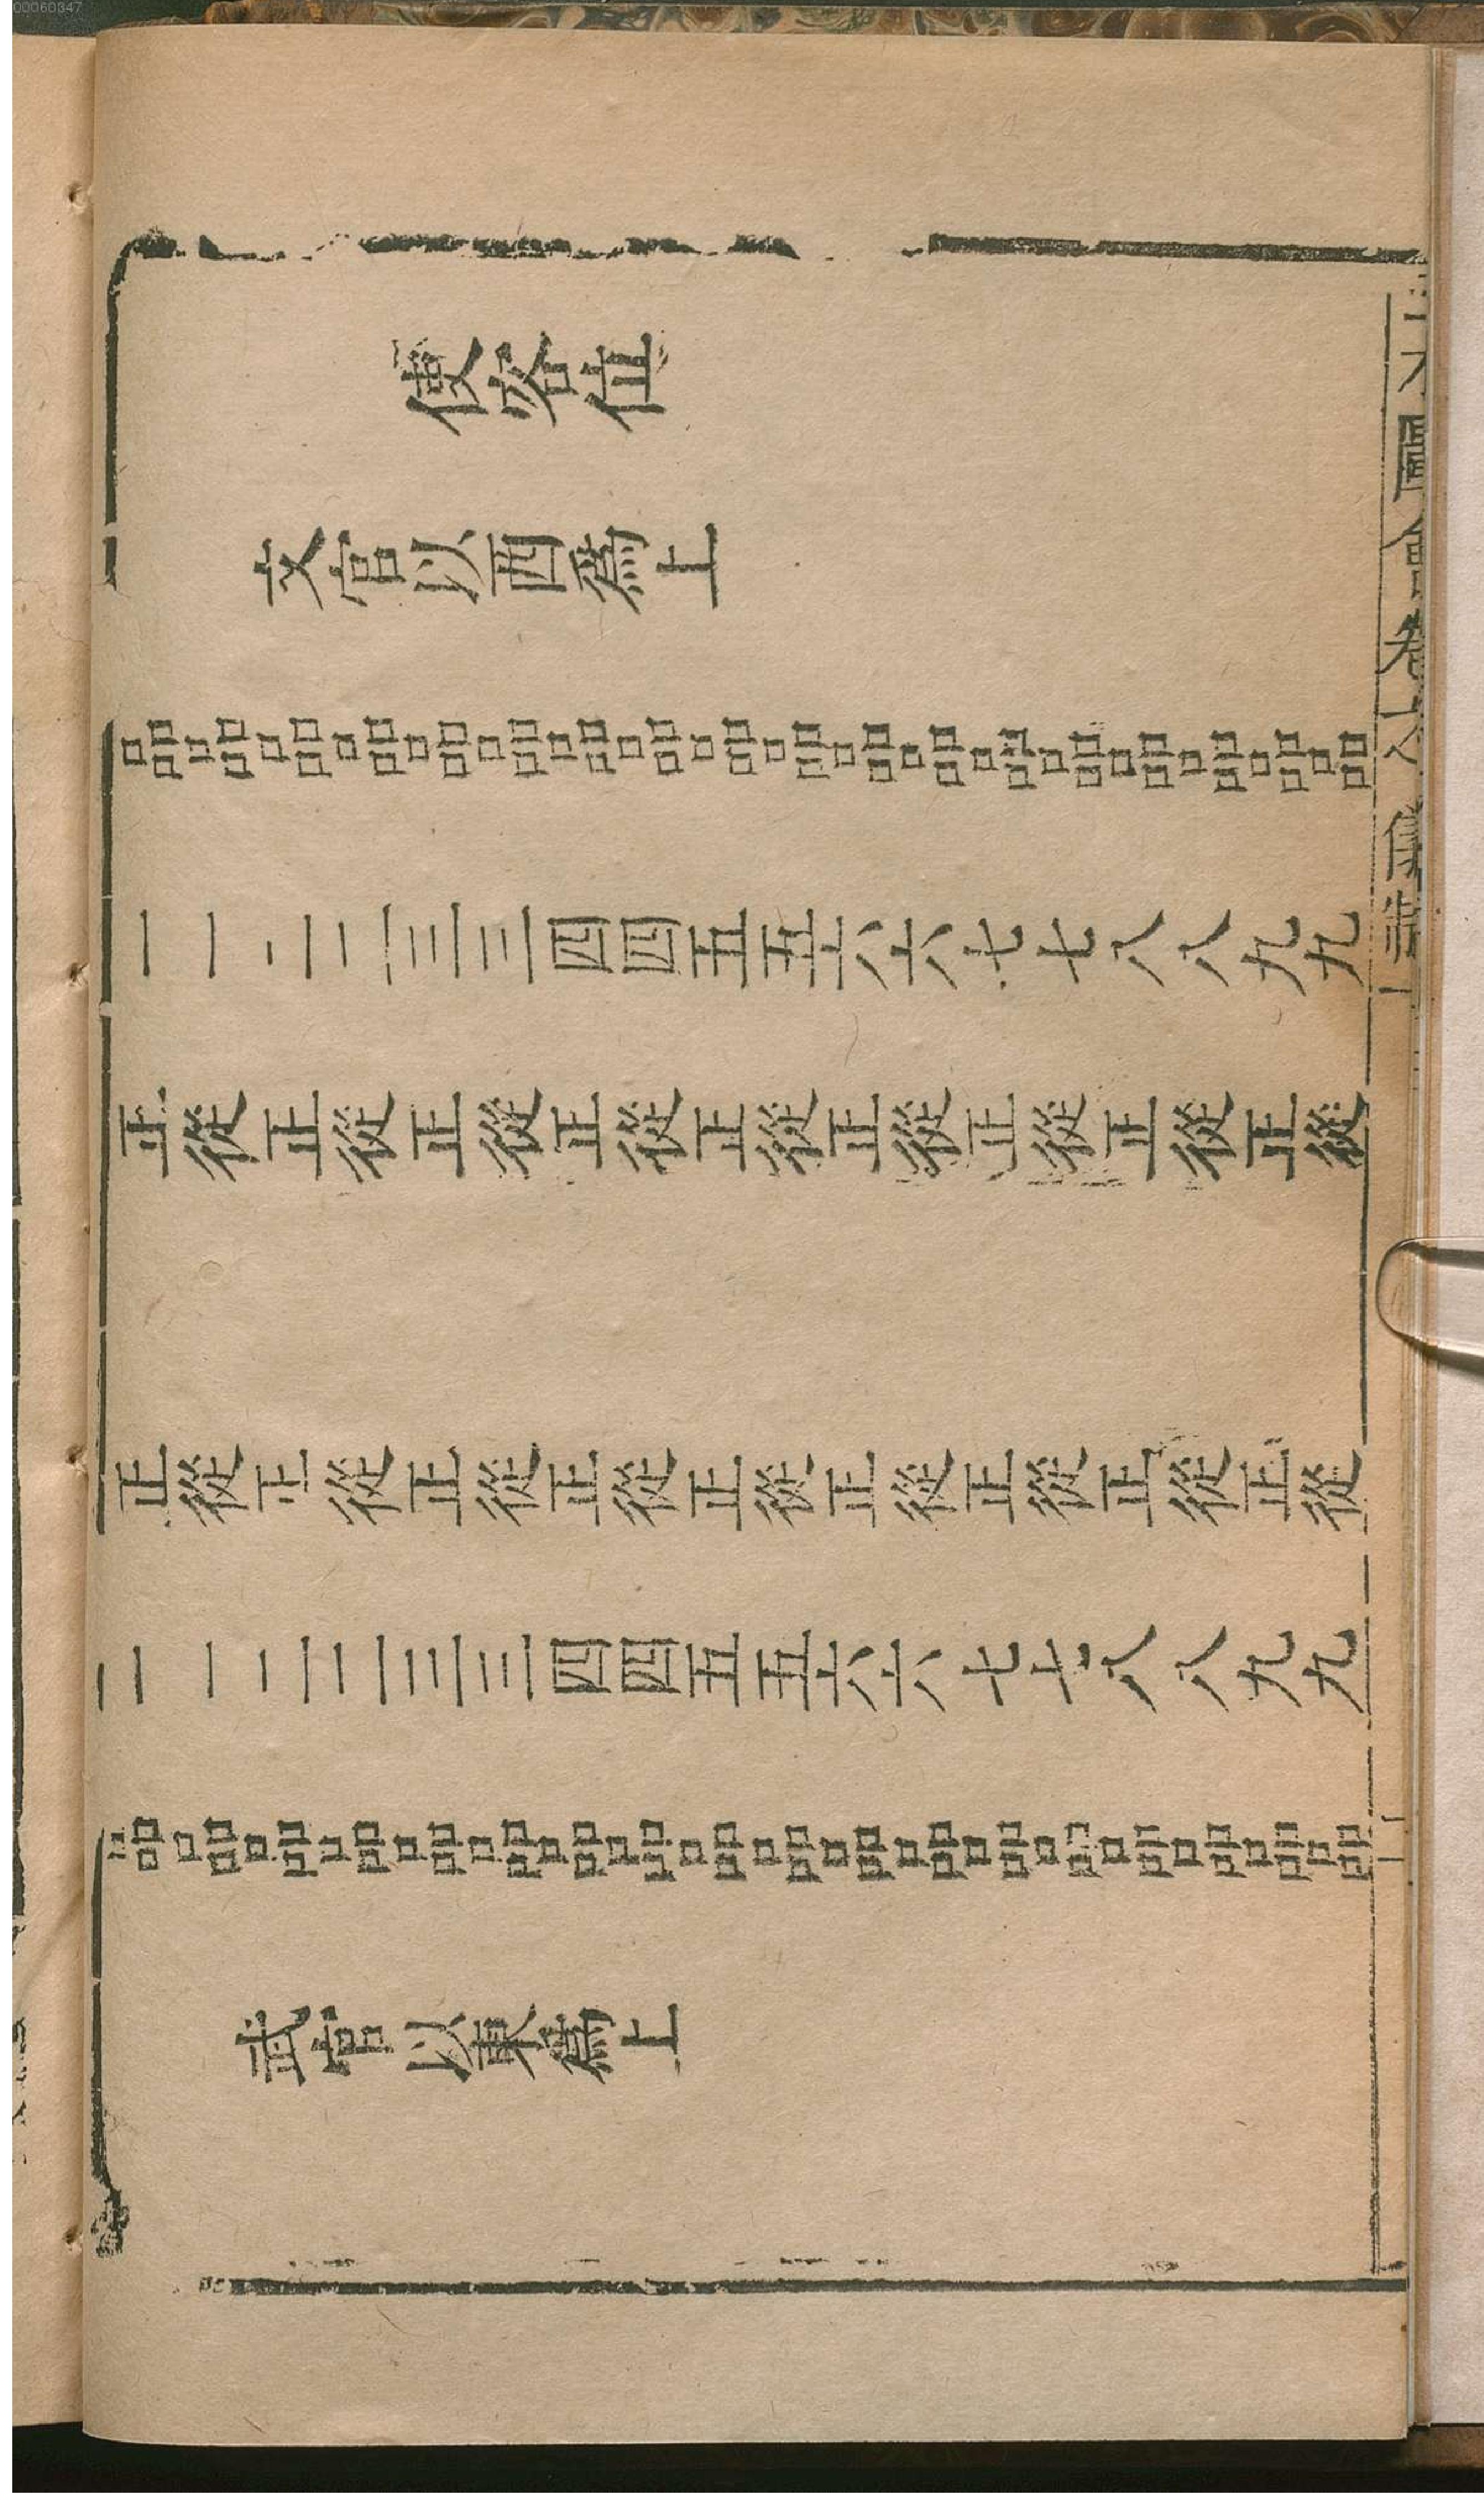 00060347
使客位
文官以西爲上
品品品品品品品品品品品品品品品品品品
一一二二三三四四五五六六七七八八九九
正從正從正從正從正從正從正從正從正從
正從正從正從正從正從正從正從正從正從
一一二二三三四四五五六六七七八八九九
品品品品品品品品品品品品品品品品品品
武官以東爲上
三才圖會卷 儀制